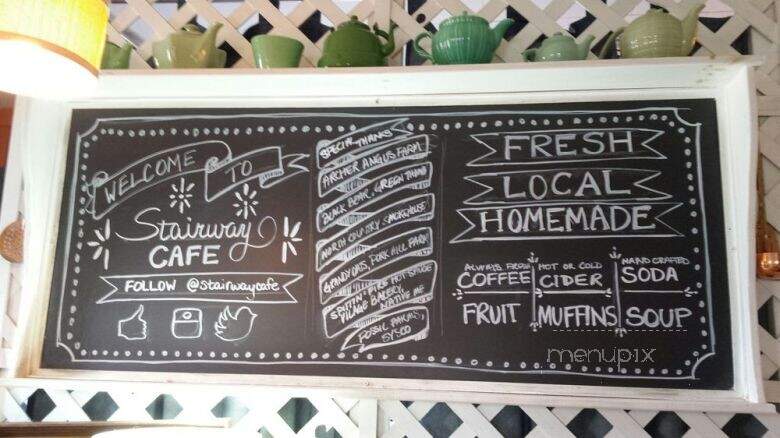 WELCOME TO
Stairway
CAFE
FOLLOW @stairwaycafe
SPECIAL THANKS
ARCHER ANGUS FARM
BLACK BEAR, GREEN THUMB
NORTH COUNTRY SMOKEHOUSE
GRANDY OATS, PORK HILL FARM
SPITTIN' FIRE HOT SAUCE
VILLAGE BAKERY,
NATIVE ME
FOSSIL FARMS,
SYSCO
FRESH
LOCAL
HOMEMADE
ALWAYS FRESH
COFFEE
HOT OR COLD
CIDER
HAND CRAFTED
SODA
FRUIT
MUFFINS
SOUP
menupix